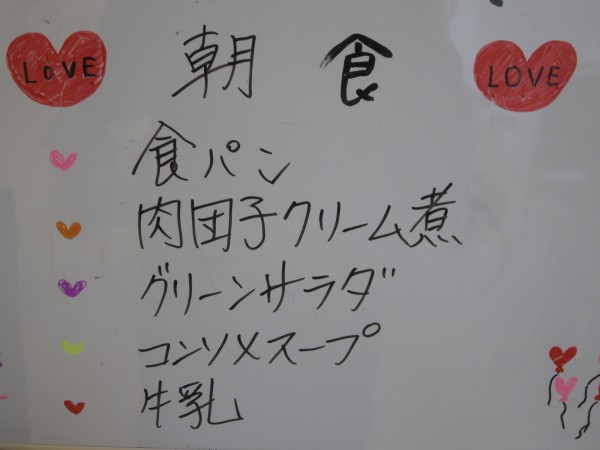 LOVE 朝食 LOVE
食パン
肉団子クリーム煮
グリーンサラダ
コンソメスープ
牛乳